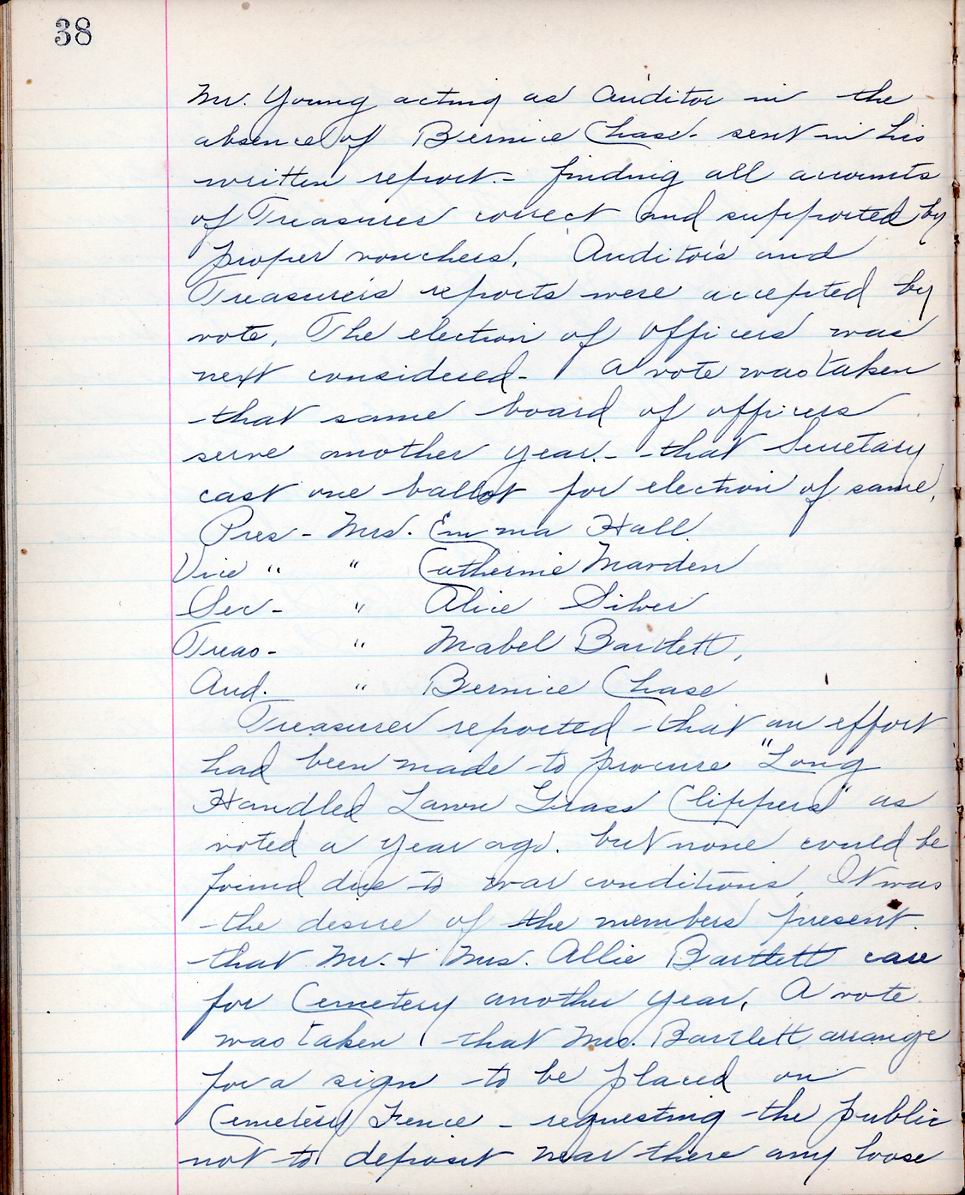 38
Mr. Young acting as Auditor in the
absence of Bernice Chase - sent in his
written report - finding all accounts
of Treasurer correct and supported by
proper vouchers. Auditor's and
Treasurer's reports were accepted by
vote. The election of officers was
next considered - A vote was taken
that same board of officers
serve another year - that Secretary
cast one ballot for election of same.
Pres - Mrs. Emma Hall
Vice " " Catherine Marden
Sec - " Alice Silver
Treas - " Mabel Bartlett,
Aud. " Bernice Chase
Treasurer reported that an effort
had been made to procure "Long
Handled Lawn Grass Clippers" as
voted a year ago. but none could be
found due to war conditions. It was
the desire of the members present
that Mr. & Mrs. Allie Bartlett care
for Cemetery another year. A vote
was taken that Mrs. Bartlett arrange
for a sign to be placed on
Cemetery Fence - requesting the public
not to deposit near there any loose